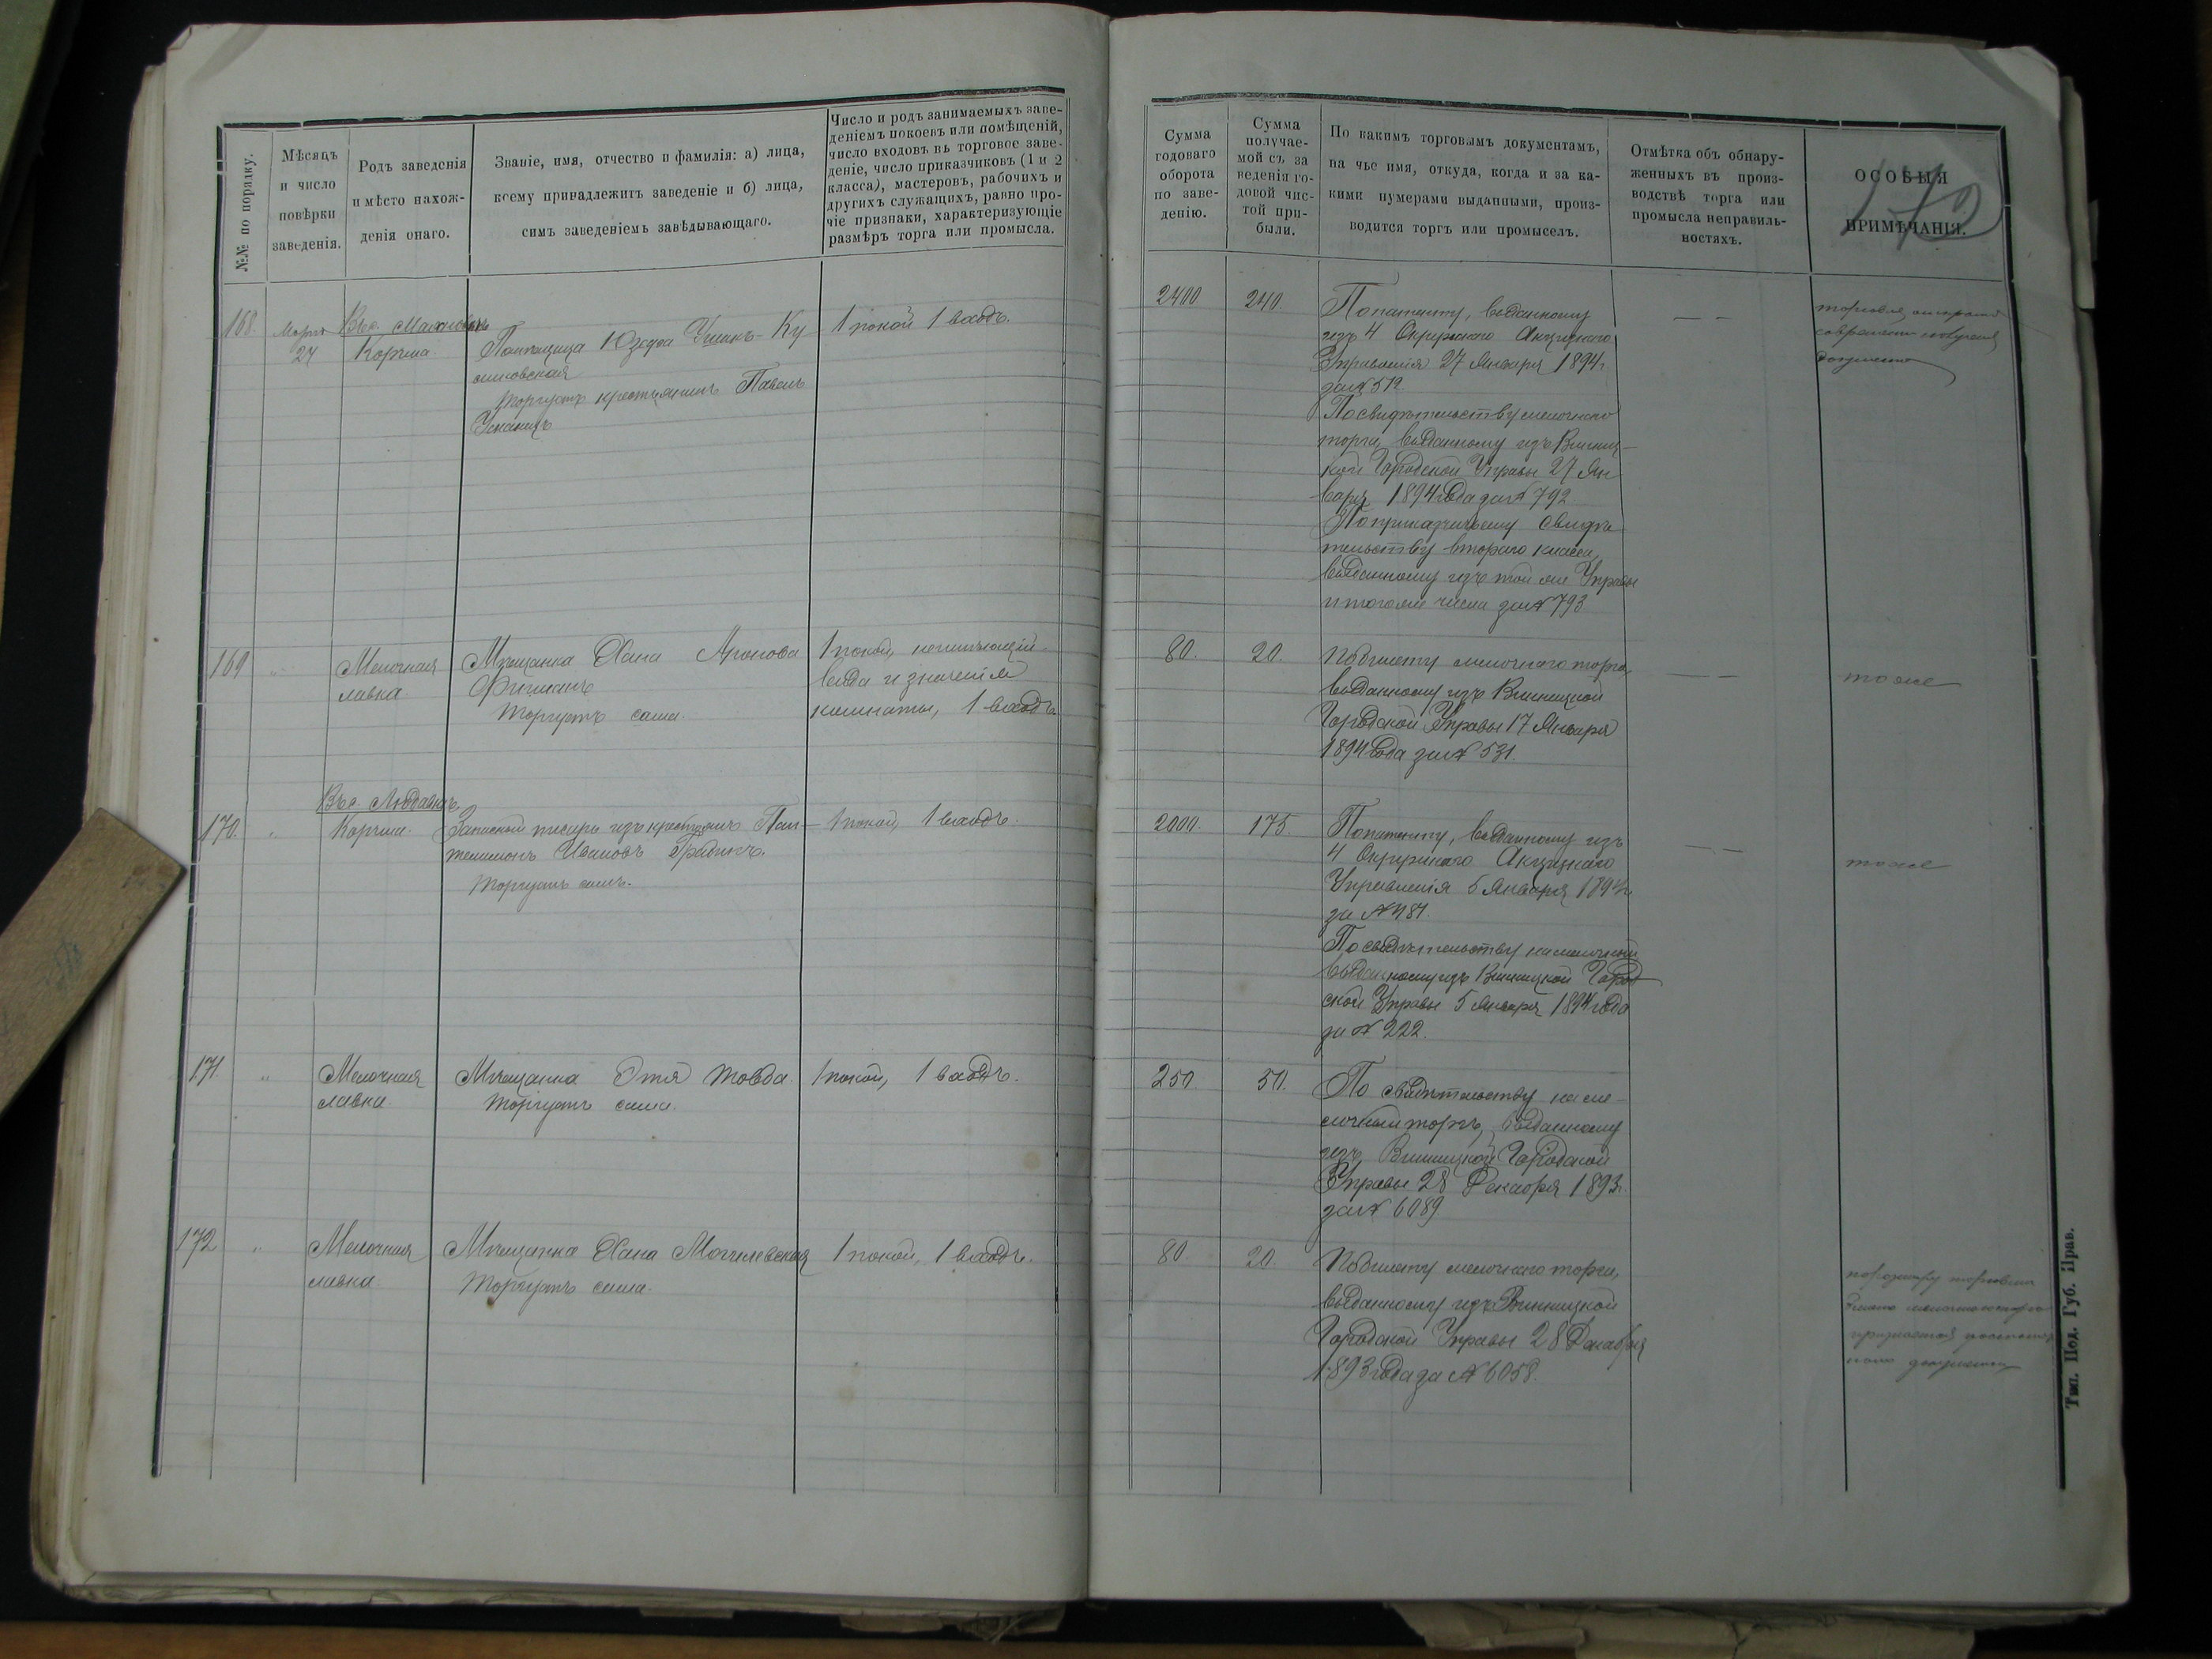 №№ по порядку.
Мѣсяцъ
и число
повѣрки
заведенія.
Родъ заведенія
и мѣсто нахож-
денія онаго.
Званіе, имя, отчество и фамилія: а) лица,
коему принадлежитъ заведеніе и б) лица,
симъ заведеніемъ завѣдывающаго.
Число и родъ занимаемыхъ заве-
деніемъ покоевъ или помѣщеній,
число входовъ въ торговое заве-
деніе, число приказчиковъ (1 и 2
класса), мастеровъ, рабочихъ и
другихъ служащихъ, равно про-
чіе признаки, характеризующіе
размѣръ торга или промысла.
Сумма
годоваго
оборота
по заве-
денію.
Сумма
получае-
мой съ за
веденія го-
довой чис-
той при-
были.
По какимъ торговымъ документамъ,
на чье имя, откуда, когда и за ка-
кими нумерами выданнымъ, произ-
водится торгъ или промыселъ.
Отмѣтка объ обнару-
женныхъ въ произ-
водствѣ торга или
промысла неправиль-
ностяхъ.
ОСОБЫЯ
ПРИМѢЧАНІЯ.
168.
Марта
27
Въ с.
Корчма
Помѣщица Юзефа
Торгуетъ крестьянинъ Павелъ
1 покой 1 входъ.
2400
240.
По патенту, выданному
изъ 4 Окружнаго Акцизнаго
Управленія 27 Января 1894 г.
за № 512
По свидѣтельству мелочнаго
торга, выданному изъ Винниц-
кой Городской Управы 27 Ян
варя 1894 года за № 792
По приказчичьему свидѣ
тельству втораго класса,
выданному изъ той же Управы
и того же числа за № 793
— —
169
"
Мелочная
лавка
Мѣщанка Хана Аронова
Фигманъ
Торгуетъ сама.
1 покой, неимѣющій
вида и значенія
комнаты, 1 входъ
80.
20.
По билету мелочнаго торга,
выданному изъ Винницкой
Городской Управы 17 Января
1894 года за № 531.
— —
тоже
Въ с.
170.
"
Корчма.
Запасный писарь изъ крестьянъ Пан-
телимонъ Ивановъ
Торгуетъ самъ.
1 покой, 1 входъ.
2000.
175.
По патенту, выданному изъ
4 Окружнаго Акцизнаго
Управленія 5 Января 1894 г.
за № 481.
По свидѣтельству на мелочной
выданному изъ Винницкой Город
ской Управы 5 Января 1894 года
за № 222.
— —
тоже
171.
"
Мелочная
лавка.
Мѣщанка Этя Товба.
Торгуетъ сама.
1 покой, 1 входъ.
250
50.
По свидѣтельству на ме-
лочный торгъ, выданному
изъ Винницкой Городской
Управы 28 Декабря 1893 г.
за № 6089
172
"
Мелочная
лавка.
Мѣщанка Хана Могилевская
Торгуетъ сама.
1 покой, 1 входъ.
80.
20.
По билету мелочнаго торга,
выданному изъ Винницкой
Городской Управы 28 Декабря
1893 года за № 6058.
Тип. Под. Губ. Прав.